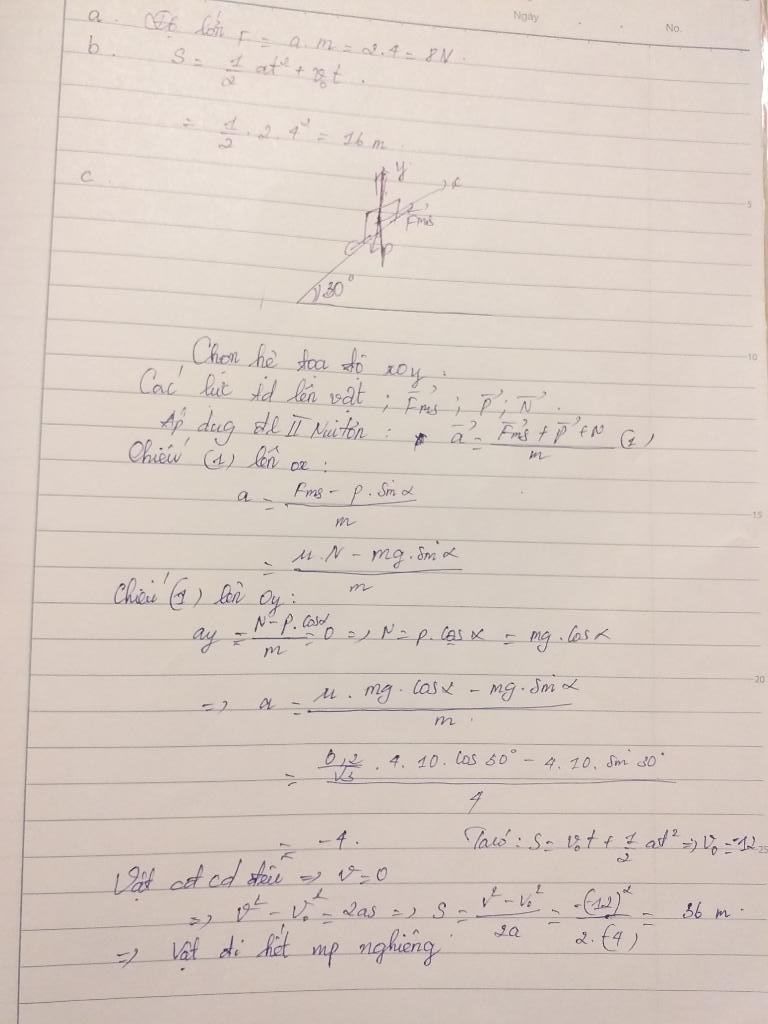 Ngày
No.
a. Độ lớn F = a.m = 2.4 = 8N.
b. S = 1/2 at² + v₀t.
= 1/2 . 2 . 4² = 16 m
c.
y
x
Fms
P
30°
Chọn hệ tọa độ xOy.
Các lực td lên vật ; Fms ; P ; N.
Áp dụg ĐL II Niutơn : a = (Fms + P + N)/m (1)
Chiếu (1) lên ox :
a = (Fms - P.sinα)/m
= (μ.N - mg.sinα)/m
Chiếu (1) lên Oy :
ay = (N - P.cosα)/m = 0 => N = P.cosα = mg.cosα
=> a = (μ.mg.cosα - mg.sinα)/m
= (0,2/√3 . 4.10.cos 30° - 4.10.sin 30°)/4
= -4. Ta có : S = v₀t + 1/2 at² => v₀ = -12
Vật cđ đều => v=0
=> v² - v₀² = 2as => S = (v² - v₀²)/2a = -(-12)²/2.(-4) = 36 m.
=> Vật đi hết mp nghiêng
5
10
15
20
25